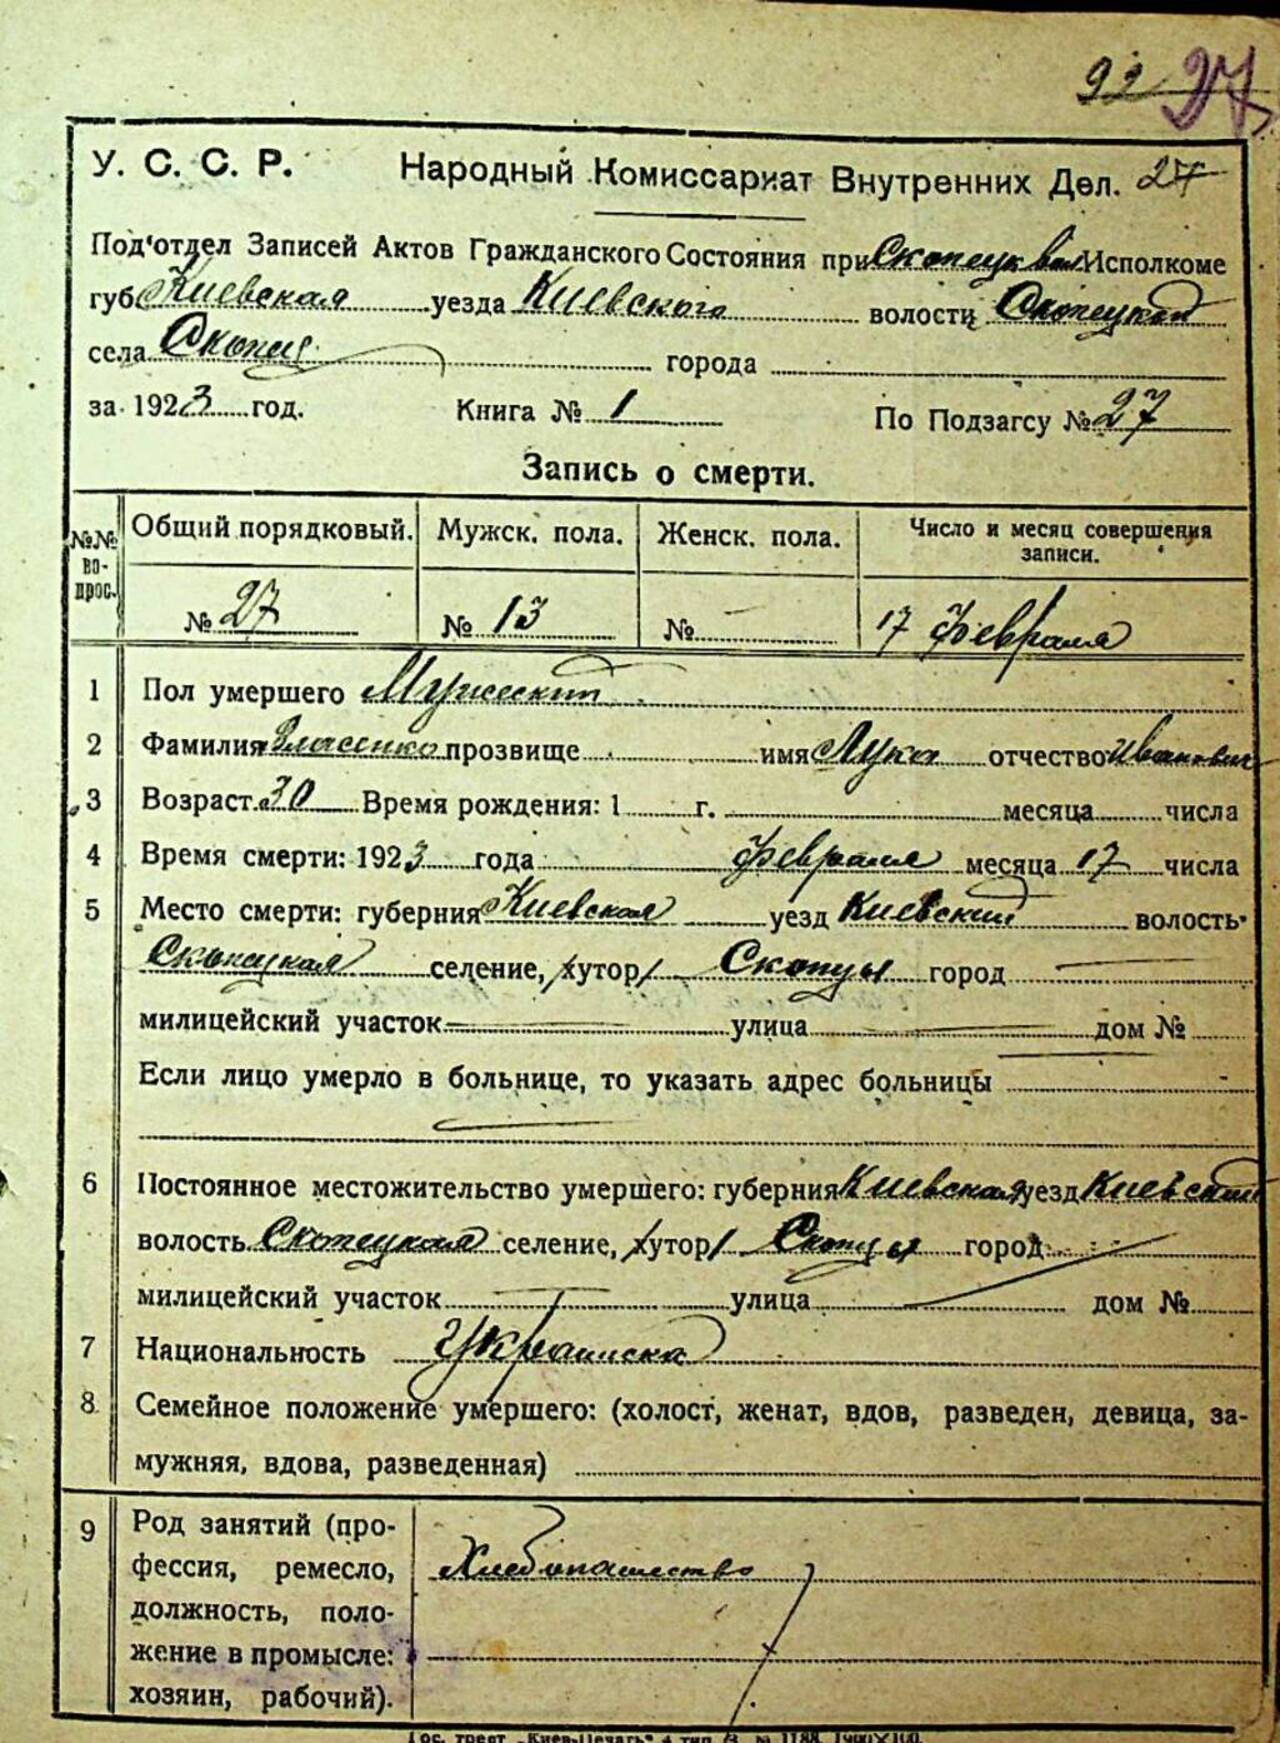 92 27
У. С. С. Р. Народный Комиссариат Внутренних Дел. 27
Под'отдел Записей Актов Гражданского Состояния при Скопецк вол Исполкоме
губ Киевская уезда Киевского волости Скопецкой
села Скопцы города
за 1923 год. Книга № 1 По Подзагсу № 27
Запись о смерти.
№№ вопрос. Общий порядковый. Мужск. пола. Женск. пола. Число и месяц совершения записи.
№ 27 № 13 № - 17 Февраля
1 Пол умершего Мужеский
2 Фамилия Власенко прозвище имя Лука отчество Иванович
3 Возраст 30 Время рождения: 1 г. месяца числа
4 Время смерти: 1923 года февраля месяца 17 числа
5 Место смерти: губерния Киевская уезд Киевский волость
Скопецкая селение, хутор Скопцы город
милицейский участок улица дом №
Если лицо умерло в больнице, то указать адрес больницы
6 Постоянное местожительство умершего: губерния Киевская уезд Киевский
волость Скопецкая селение, хутор Скопцы город
милицейский участок улица дом №
7 Национальность Украинска
8 Семейное положение умершего: (холост, женат, вдов, разведен, девица, за-
мужняя, вдова, разведенная)
9 Род занятий (про-
фессия, ремесло, Хлебопашество
должность, поло-
жение в промысле:
хозяин, рабочий).
Гос. трест „Киев-Печать“ 4 тип. З. № 1188. 1900×100.